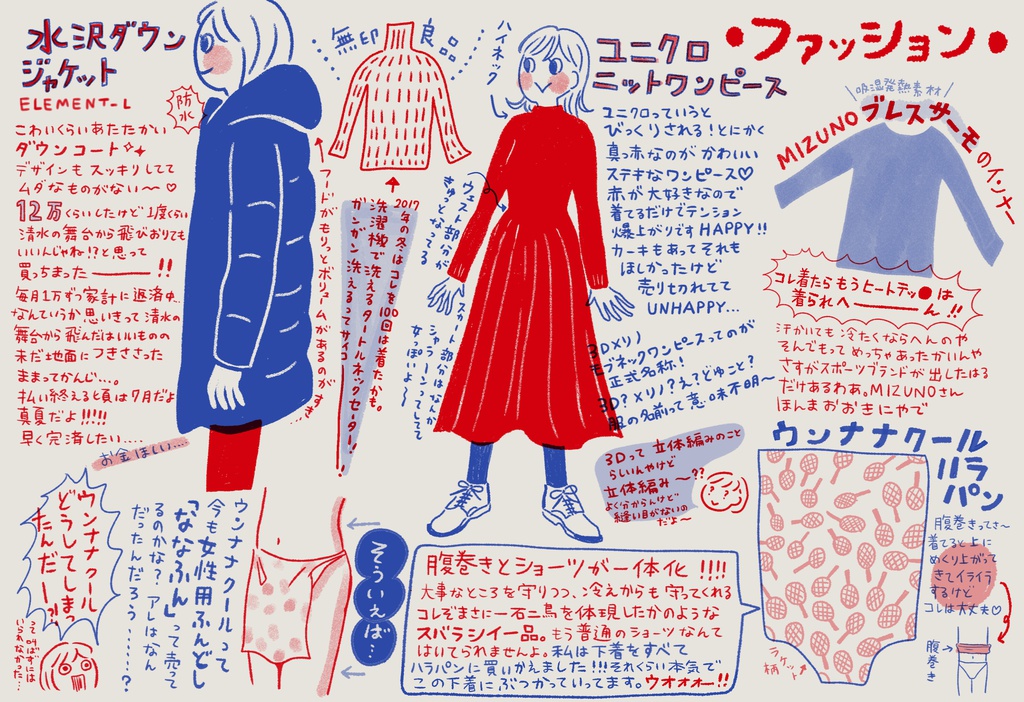 •ファッション•
水沢ダウン
ジャケット
ELEMENT-L
防
水
こわいくらいあたたかい
ダウンコート
デザインもスッキリしてて
ムダなものがない〜♡
12万くらいしたけど1度くらい
清水の舞台から飛びおりても
いいんじゃね!?と思って
買っちまった———!!
毎月1万ずつ家計に返済中…
なんていうか思いきって清水の
舞台から飛んだはいいものの
未だ地面につきささった
ままってかんじ…。
払い終える頃は7月だよ
真夏だよ!!!!!
早く完済したい….
お金ほしい….
フードがもりっとボリュームがあるのが
すき…
無印良品
2017
年の冬はコレを100回は着たかも。
洗濯機で洗えるタートルネックセーター!
ガンガン洗えるってサイコー!!
ハイネック
ウェスト部分が
きゅっとなってる
スカート部分はなんか
シャラーンってしてて
女っぽいよ〜!
ユニクロ
ニットワンピース
ユニクロっていうと
びっくりされる!とにかく
真っ赤なのがかわいい
ステキなワンピース♡
赤が大好きなので
着てるだけでテンション
爆上がりですHAPPY!!
カーキもあってそれも
ほしかったけど
売りきれてて
UNHAPPY…
3D×リノ
モックネックワンピースってのが
正式名称!
3D?×リノ?え?どゆこと?
服の名前って意味不明〜
3Dって立体編みのこと
らしいんやけど
立体編み〜??
よく分からんけど
縫い目がないの
だよ〜
\吸湿発熱素材/
MIZUNOブレスサーモのインナー
コレ着たらもうヒートテッ●は
着られへ———ん!!
汗かいても冷たくならへんのや
そんでもってめっちゃあったかいんや
さすがスポーツブランドが出したはる
だけあるわあ。MIZUNOさん
ほんまおおきにやで
ウンナナクール
ハラ
パン
腹巻きってさ〜
着てると上に
めくり上がって
きてイライラ
するけど
コレは大丈夫♡
腹巻き
ラケット
柄
腹巻きとショーツが一体化!!!!
大事なところを守りつつ、冷えからも守ってくれる
コレぞまさに一石二鳥を体現したかのような
スバラシイ一品。もう普通のショーツなんて
はいてられませんよ。私は下着をすべて
ハラパンに買いかえました!!!それくらい本気で
この下着にぶつかっていってます。ウオオオー!!
そういえば…
ウンナナクールって
今も女性用ふんどし
「ななふん」って売って
るのかな?アレはなん
だったんだろう……?
ウンナナクール
どうしてしまっ
たんだー!!
って叫ばずには
いられなかった…